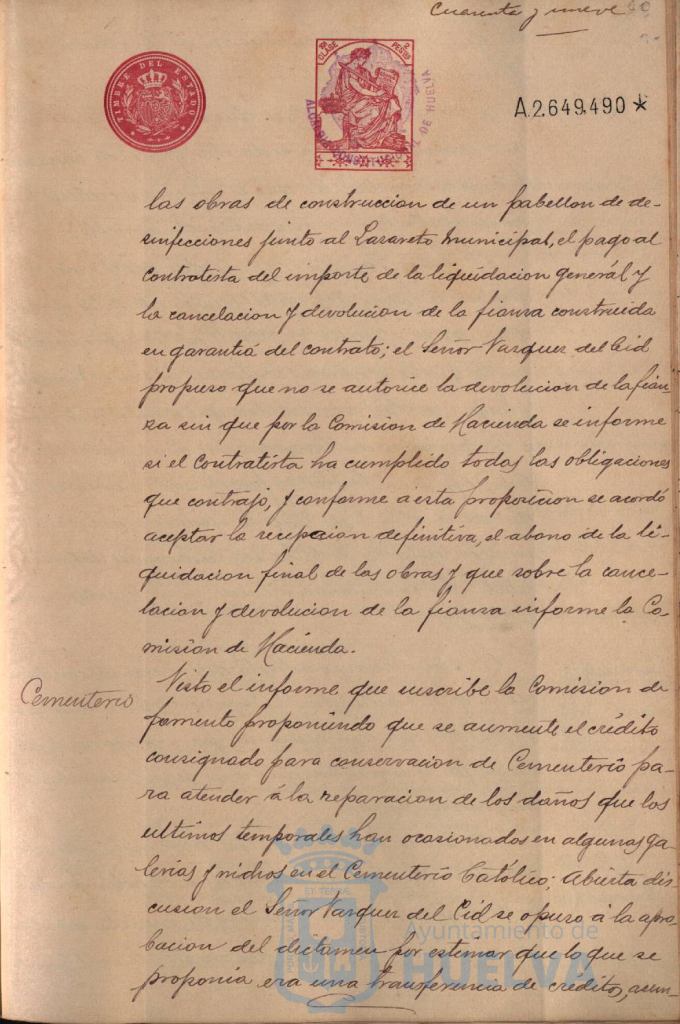 Cuarenta y nueve 49
TIMBRE DEL ESTADO
10ª CLASE 2 PESETAS
ALCALDIA CONSTITUCIONAL DE HUELVA
A.2.649.490 *
las obras de construccion de un pabellon de de-
sinfecciones junto al Lazareto Municipal, el pago al
contratista del importe de la liquidacion general y
la cancelacion y devolucion de la fianza construida
en garantia del contrato; el Señor Vazquez del Cid
propuso que no se autorice la devolucion de la fian-
za sin que por la Comision de Hacienda se informe
si el Contratista ha cumplido todas las obligaciones
que contrajo, y conforme á esta proposicion se acordó
aceptar la recepcion definitiva, el abono de la li-
quidacion final de las obras y que sobre la cance-
lacion y devolucion de la fianza informe la Co-
mision de Hacienda.
Cementerio
Visto el informe que suscribe la Comision de
fomento proponiendo que se aumente el crédito
consignado para conservacion de Cementerio pa-
ra atender á la reparacion de los daños que los
ultimos temporales han ocasionados en algunas ga-
lerias y nichos en el Cementerio Católico; Abierta dis-
cusion el Señor Vazquez del Cid se opuso á la apro-
bacion del dictamen por estimar que lo que se
proponia era una transferencia de creditos, acom-
Ayuntamiento de
HUELVA